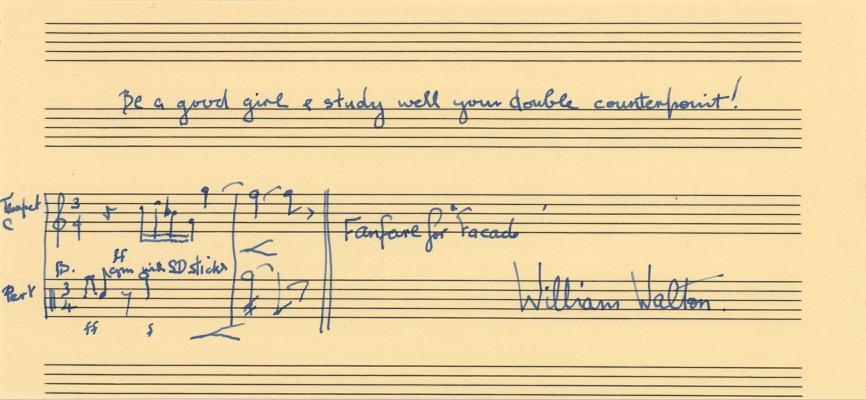 Be a good girl & study well your double counterpoint!
Trumpet
C
3
4
Fanfare for "Facade"
ff
cym with SD sticks
Perc
3
4
ff
William Walton.